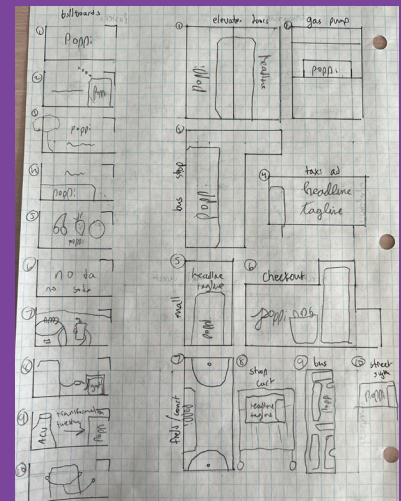 billboards
1
Poppi
2
Poppi
3
poppi
4
poppi
5
poppi
6
no
no soda
7
8
9
ACV
transformation
Poppi
10
elevator doors
1
poppi
headline
gas pump
2
poppi
3
bus stop
poppi
4
taxi ad
headline
tagline
5
mall
headline
tagline
poppi
6
checkout
poppi
7
field/court
poppi
8
shop cart
headline
tagline
9
bus
poppi
10
street sign
poppi